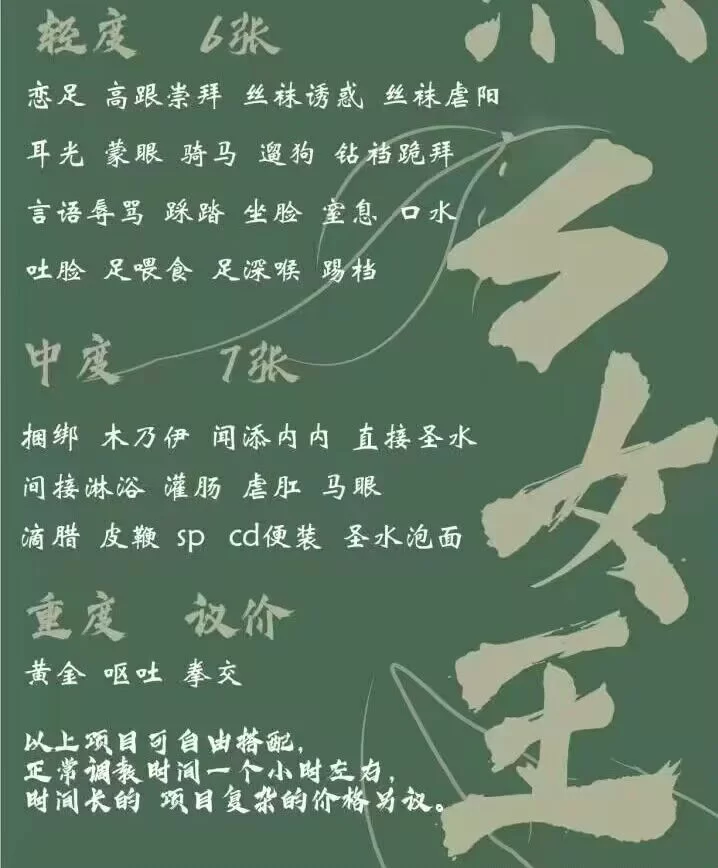 轻度 6张
恋足 高跟崇拜 丝袜诱惑 丝袜虐阳
耳光 蒙眼 骑马 遛狗 钻裆跪拜
言语辱骂 踩踏 坐脸 窒息 口水
吐脸 足喂食 足深喉 踢档
中度 7张
捆绑 木乃伊 闻添内内 直接圣水
间接淋浴 灌肠 虐肛 马眼
滴腊 皮鞭 sp cd便装 圣水泡面
重度 议价
黄金 呕吐 拳交
以上项目可自由搭配,
正常调教时间一个小时左右,
时间长的 项目复杂的价格另议。
女王